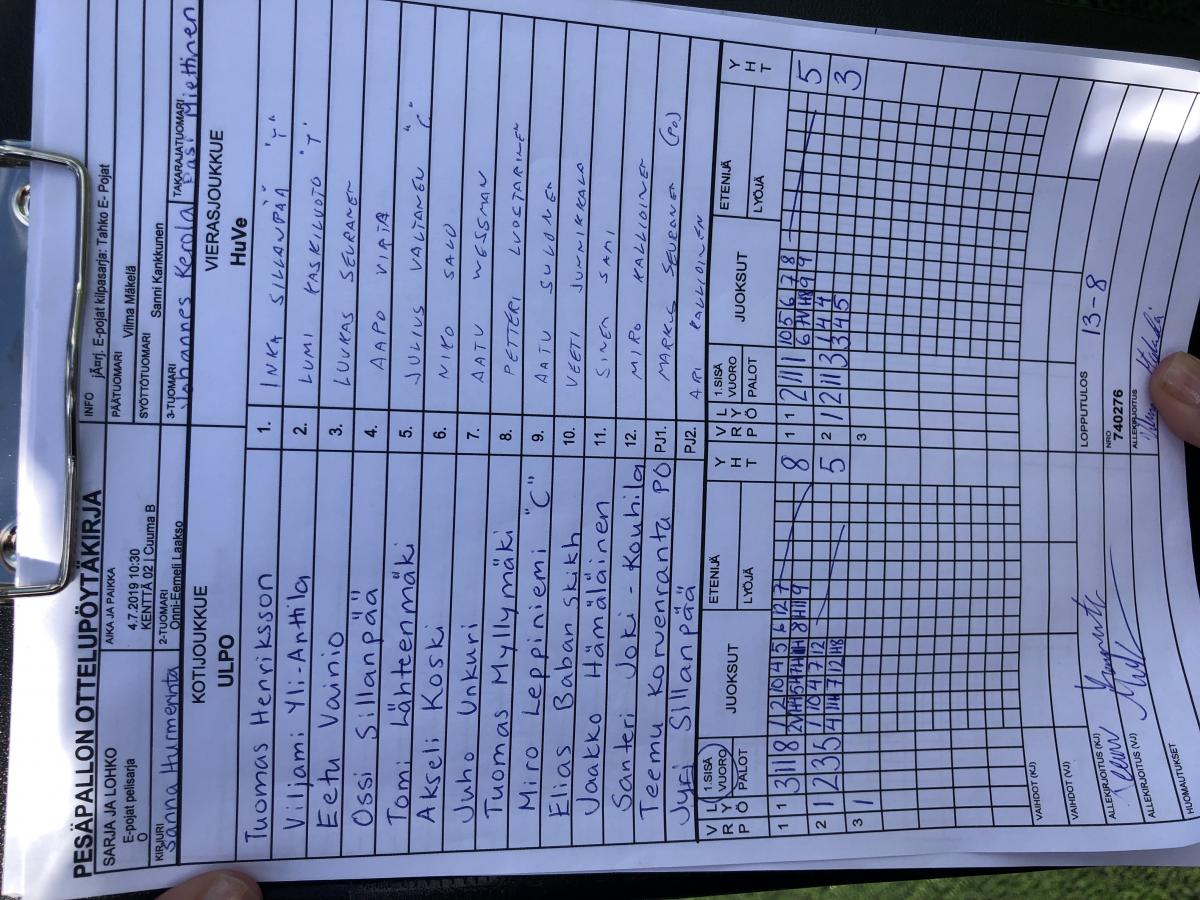 PESÄPALLON OTTELUPÖYTÄKIRJA
SARJA JA LOHKO
E-pojat pelisarja
O
AIKA JA PAIKKA
4.7.2019 10:30
KENTTÄ 02 | Cuuma B
INFO
jÄ¤rj. E-pojat kilpasarja: Tahko E- Pojat
PÄÄTUOMARI
Vilma Mäkelä
SYÖTTÖTUOMARI
Sanni Kankkunen
KIRJURI
Sanna Hurmerinta
2-TUOMARI
Onni-Eemeli Laakso
3-TUOMARI
Johannes Kerola
TAKARAJATUOMARI
Pasi Miettinen
KOTIJOUKKUE
ULPO
VIERASJOUKKUE
HuVe
Tuomas Henriksson 1. INKA SILLANPÄÄ "T"
Viljami Yli-Anttila 2. LUMI KASKILUOTO "T"
Eetu Vainio 3. LUUKAS SEURANEN
Ossi Sillanpää 4. AAPO VIRTA
Tomi Lähteenmäki 5. JULIUS VALTANEN "C"
Akseli Koski 6. NIKO SALO
Juho Unkuri 7. AATU WESSMAN
Tuomas Myllymäki 8. PETTERI LUOSTARINEN
Miro Leppiniemi "C" 9. AATU SULONEN
Elias Babanskikh 10. VEETI JUNNIKKALA
Jaakko Hämäläinen 11. SINEN SAMI
Santeri Joki-Kouhila 12. MIRO KALLIOINEN
Teemu Korvenranta PO PJ1. MARKUS SEURANEN (PO)
Jyri Sillanpää PJ2. ARI KALLIOINEN
V R P L Y Ö 1.SISÄ VUORO PALOT JUOKSUT ETENIJÄ LYÖJÄ Y H T V R P L Y Ö 1.SISÄ VUORO PALOT JUOKSUT ETENIJÄ LYÖJÄ Y H T
1 1 3 11 8 1 2 10 4 5 6 12 7 8 1 1 2 11 1 10 5 6 7 8 5
2 1 2 3 5 1 10 4 7 12 5 2 1 2 11 3 1 4 4 3
3 4 5
3 1 3
VAIHDOT (KJ)
VAIHDOT (VJ)
LOPPUTULOS 13-8
ALLEKIRJOITUS (KJ)
NRO
740276
ALLEKIRJOITUS (VJ)
ALLEKIRJOITUS
HUOMAUTUKSET